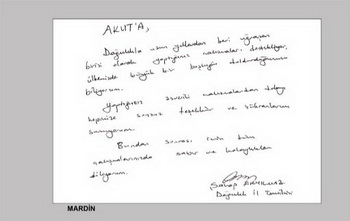 AKUT'A,
Dağcılıkla uzun yıllardan beri uğraşan
birisi olarak yaptığınız çalışmaları destekliyor,
ülkemizde büyük bir boşluğu doldurduğunuzu
biliyorum.
Yaptığınız özverili çalışmalardan dolayı
hepinize sonsuz teşekkür ve şükranlarımı
sunuyorum.
Bundan sonraki tüm
çalışmalarınızda sabır ve kolaylıklar
diliyorum.
Dağcılık İl Temsilcisi
MARDİN